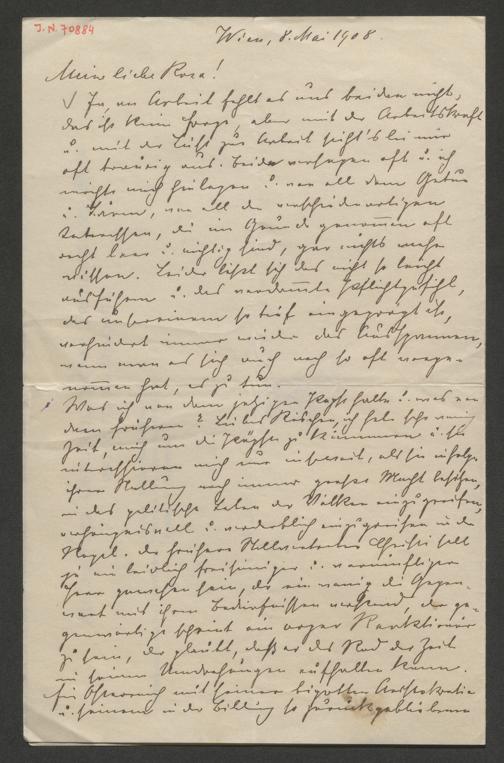 J.N. 70884
Wien, 8. Mai 1908.
Meine liebe Rosa!
Ja, an Arbeit fehlt es uns beiden nicht,
das ist keine Frage aber mit der Arbeitskraft
u. mit der Lust zur Arbeit sieht's bei mir
oft traurig aus. Beide versagen oft u. ich
möchte mich hinlegen u. von all dem Getue
u. Lärm, von all den verschiedenartigen
Interessen, die im Grunde genommen oft
recht leer u. nichtig sind, gar nichts mehr
wissen. Leider läßt sich das nicht so leicht
ausführen u. das verdammte Pflichtgefühl,
das unsereinem so tief eingeprägt ist,
verhindert immer wieder das Ausspannen,
wenn man es sich auch noch so oft vorge-
nommen hat, es zu tun.
Was ich von dem jetzigen Papst halte u. was von
dem früheren? Liebes Röschen, ich habe sehr wenig
Zeit, mich um die Päpste zu kümmern u. sie
interessieren mich nur insoweit, als sie infolge
ihrer Stellung noch immer große Macht besitzen,
in das politische Leben der Völker einzugreifen,
verhängnisvoll u. verderblich einzugreifen in der
Regel. Der frühere Stellvertreter Christi soll
ja ein leidlich freisinniger u. vernünftiger
Herr gewesen sein, der ein wenig die Gegen-
wart mit ihren Bedürfnissen verstand, der ge-
genwärtige scheint ein arger Reaktionär
zu sein, der glaubt, daß er das Rad der Zeit
in seinen Umdrehungen aufhalten kann.
Für Österreich mit seiner bigotten Aristokratie
u. seinem in der Bildung so zurückgebliebenen